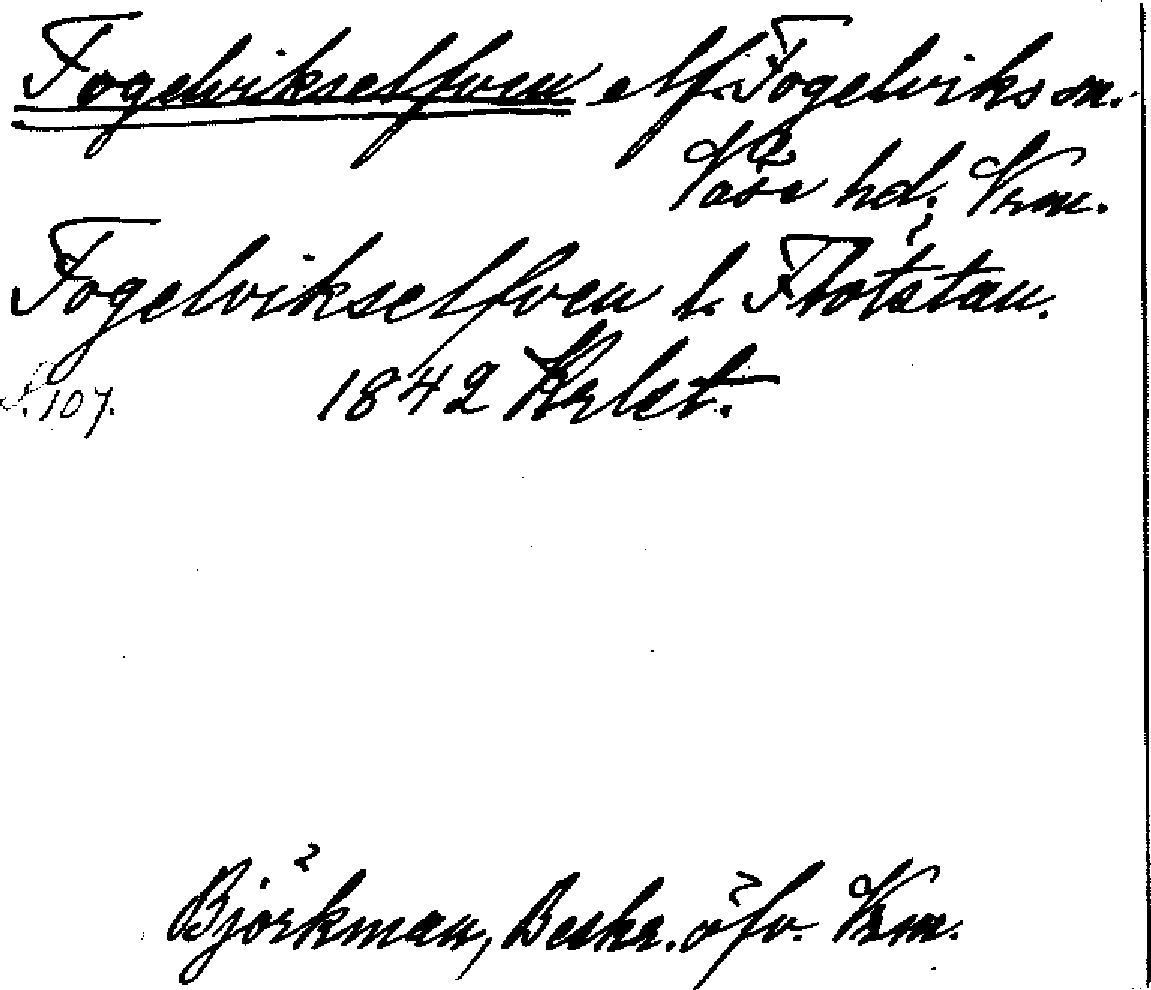 Fogelvikselfven elf. Fogelviks sn.
Väse hd. Vrm.
Fogelvikselfven l. Flötstan.
S. 107. 1842 Krlst.
Björkman, Beskr. öfv. Vrm.